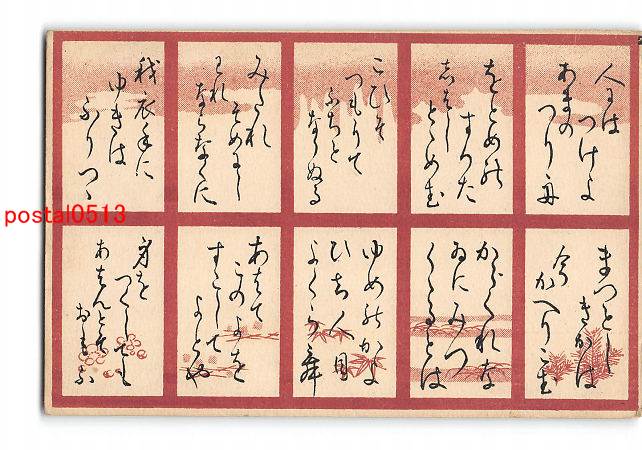 人には
つけよ
あまの
つり舟
をとめの
すかた
しはし
とゝめむ
こひそ
つもりて
ふちと
なりぬる
みたれ
そめにし
われ
ならなくに
我衣手に
ゆきは
ふりつゝ
まつとし
きかは
今
かへりこむ
からくれな
ゐにみつ
くゝるとは
ゆめのかよ
ひち人目
よくらむ
あはて
このよを
すこして
よとや
身を
つくしても
あはんとそ
おもふ
postal0513